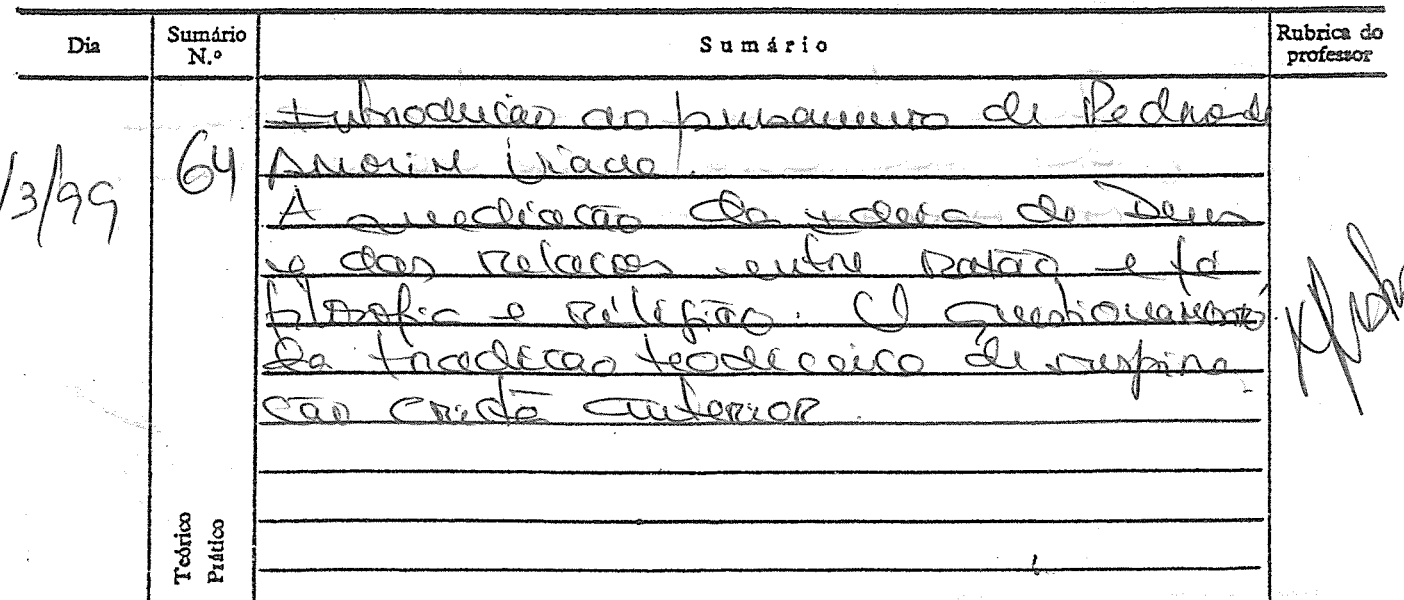 Dia
Sumário N.º
Sumário
Rubrica do professor
/3/99
64
Introdução ao pensamento de Pedro de
Amorim Viana.
A mediação da ideia de Deus
e das relações entre razão e fé
filosofia e religião. O questionamento
da tradição teodiceica de inspira-
ção cristã anterior.
Teórico
Prático